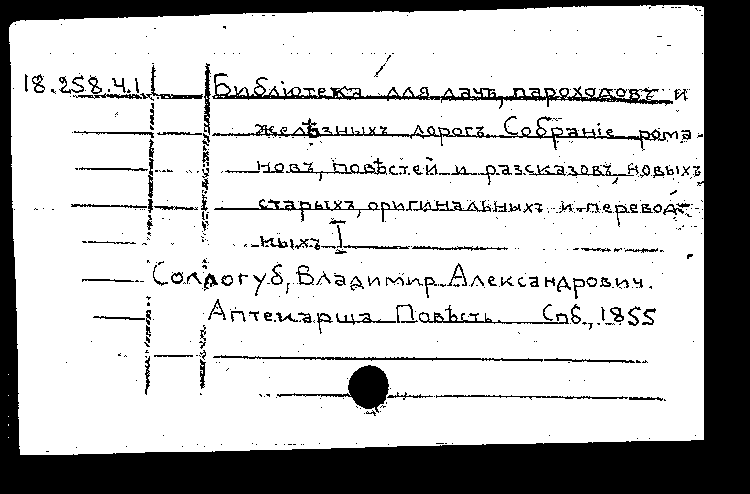 18.258.4.1 Библіотека для дачъ, пароходовъ и
желѣзныхъ дорогъ. Собраніе рома-
новъ, повѣстей и разсказовъ, новыхъ
старыхъ, оригинальныхъ и перевод-
ныхъ I
Соллогуб, Владимир Александрович.
Аптекарша. Повѣсть. Спб., 1855